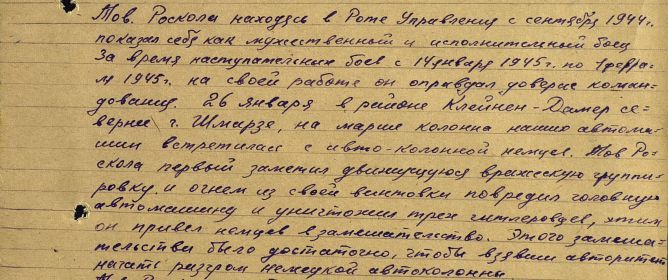 Тов. Роскола находясь в Роте Управления с сентября 1944 г.
показал себя как мужественный и исполнительный боец
За время наступательных боев с 14 января 1945 г. по 1 февра-
ля 1945 г. на своей работе он оправдал доверие коман-
дования. 26 января в районе Клейнен-Дамер се-
вернее г. Шмарзе, на марше колонна наших автома-
шин встретилась с авто-колонной немцев. Тов Ро-
скола первый заметил движущуюся вражескую группи-
ровку и огнем из своей винтовки повредил головную
автомашину и уничтожил трех гитлеровцев, этим
он привел немцев в замешательство. Этого замеша-
тельства было достаточно, чтобы взявши авторитет
начать разгром немецкой автоколонны